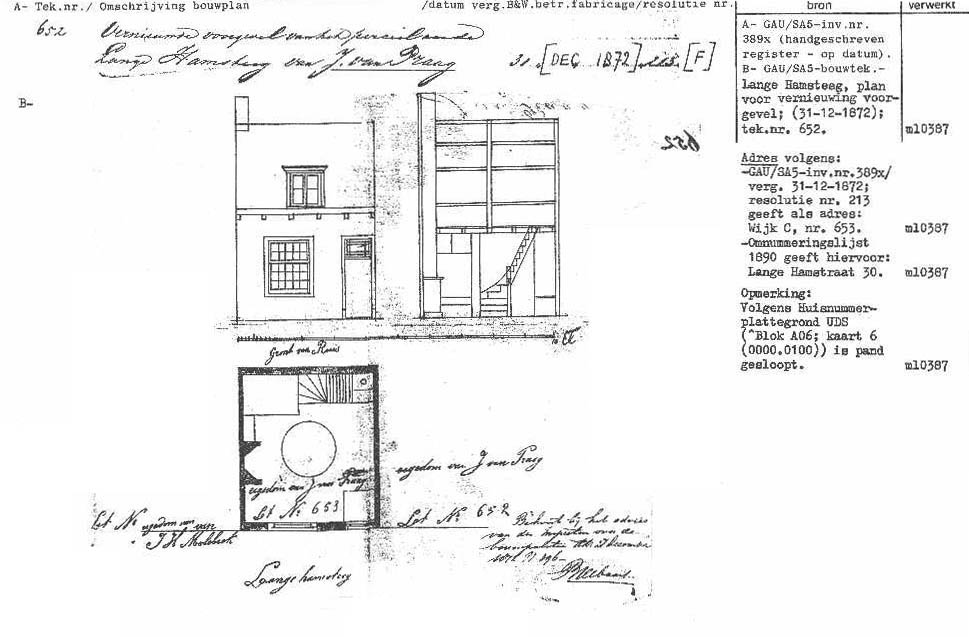 A- Tek.nr./ Omschrijving bouwplan /datum verg.B&W.betr.fabricage/resolutie nr.
bron
verwerkt
652 Vernieuwde voorgevel van het perceel aan de
Lange Hamsteeg van J. van Praag 31.[DEC 1872] 213.[F]
A- GAU/SA5-inv.nr.
389x (handgeschreven
register - op datum).
B- GAU/SA5-bouwtek.-
Lange Hamsteeg, plan
voor vernieuwing voor-
gevel; (31-12-1872);
tek.nr. 652. ml0387
B-
652
Adres volgens:
-GAU/SA5-inv.nr.389x/
verg. 31-12-1872;
resolutie nr. 213
geeft als adres:
Wijk C, nr. 653. ml0387
-Omnummeringslijst
1890 geeft hiervoor:
Lange Hamstraat 30. ml0387
Opmerking:
Volgens Huisnummer-
plattegrond UDS
(^Blok A06; kaart 6
(0000.0100)) is pand
gesloopt. ml0387
10 El
Grond van Huis
eigedom van J van Praag
eigedom van J van Praag
Let No 653
Let No 652
Let No eigedom van
Behoort bij het advies
van den
1872 No
Lange hamsteeg